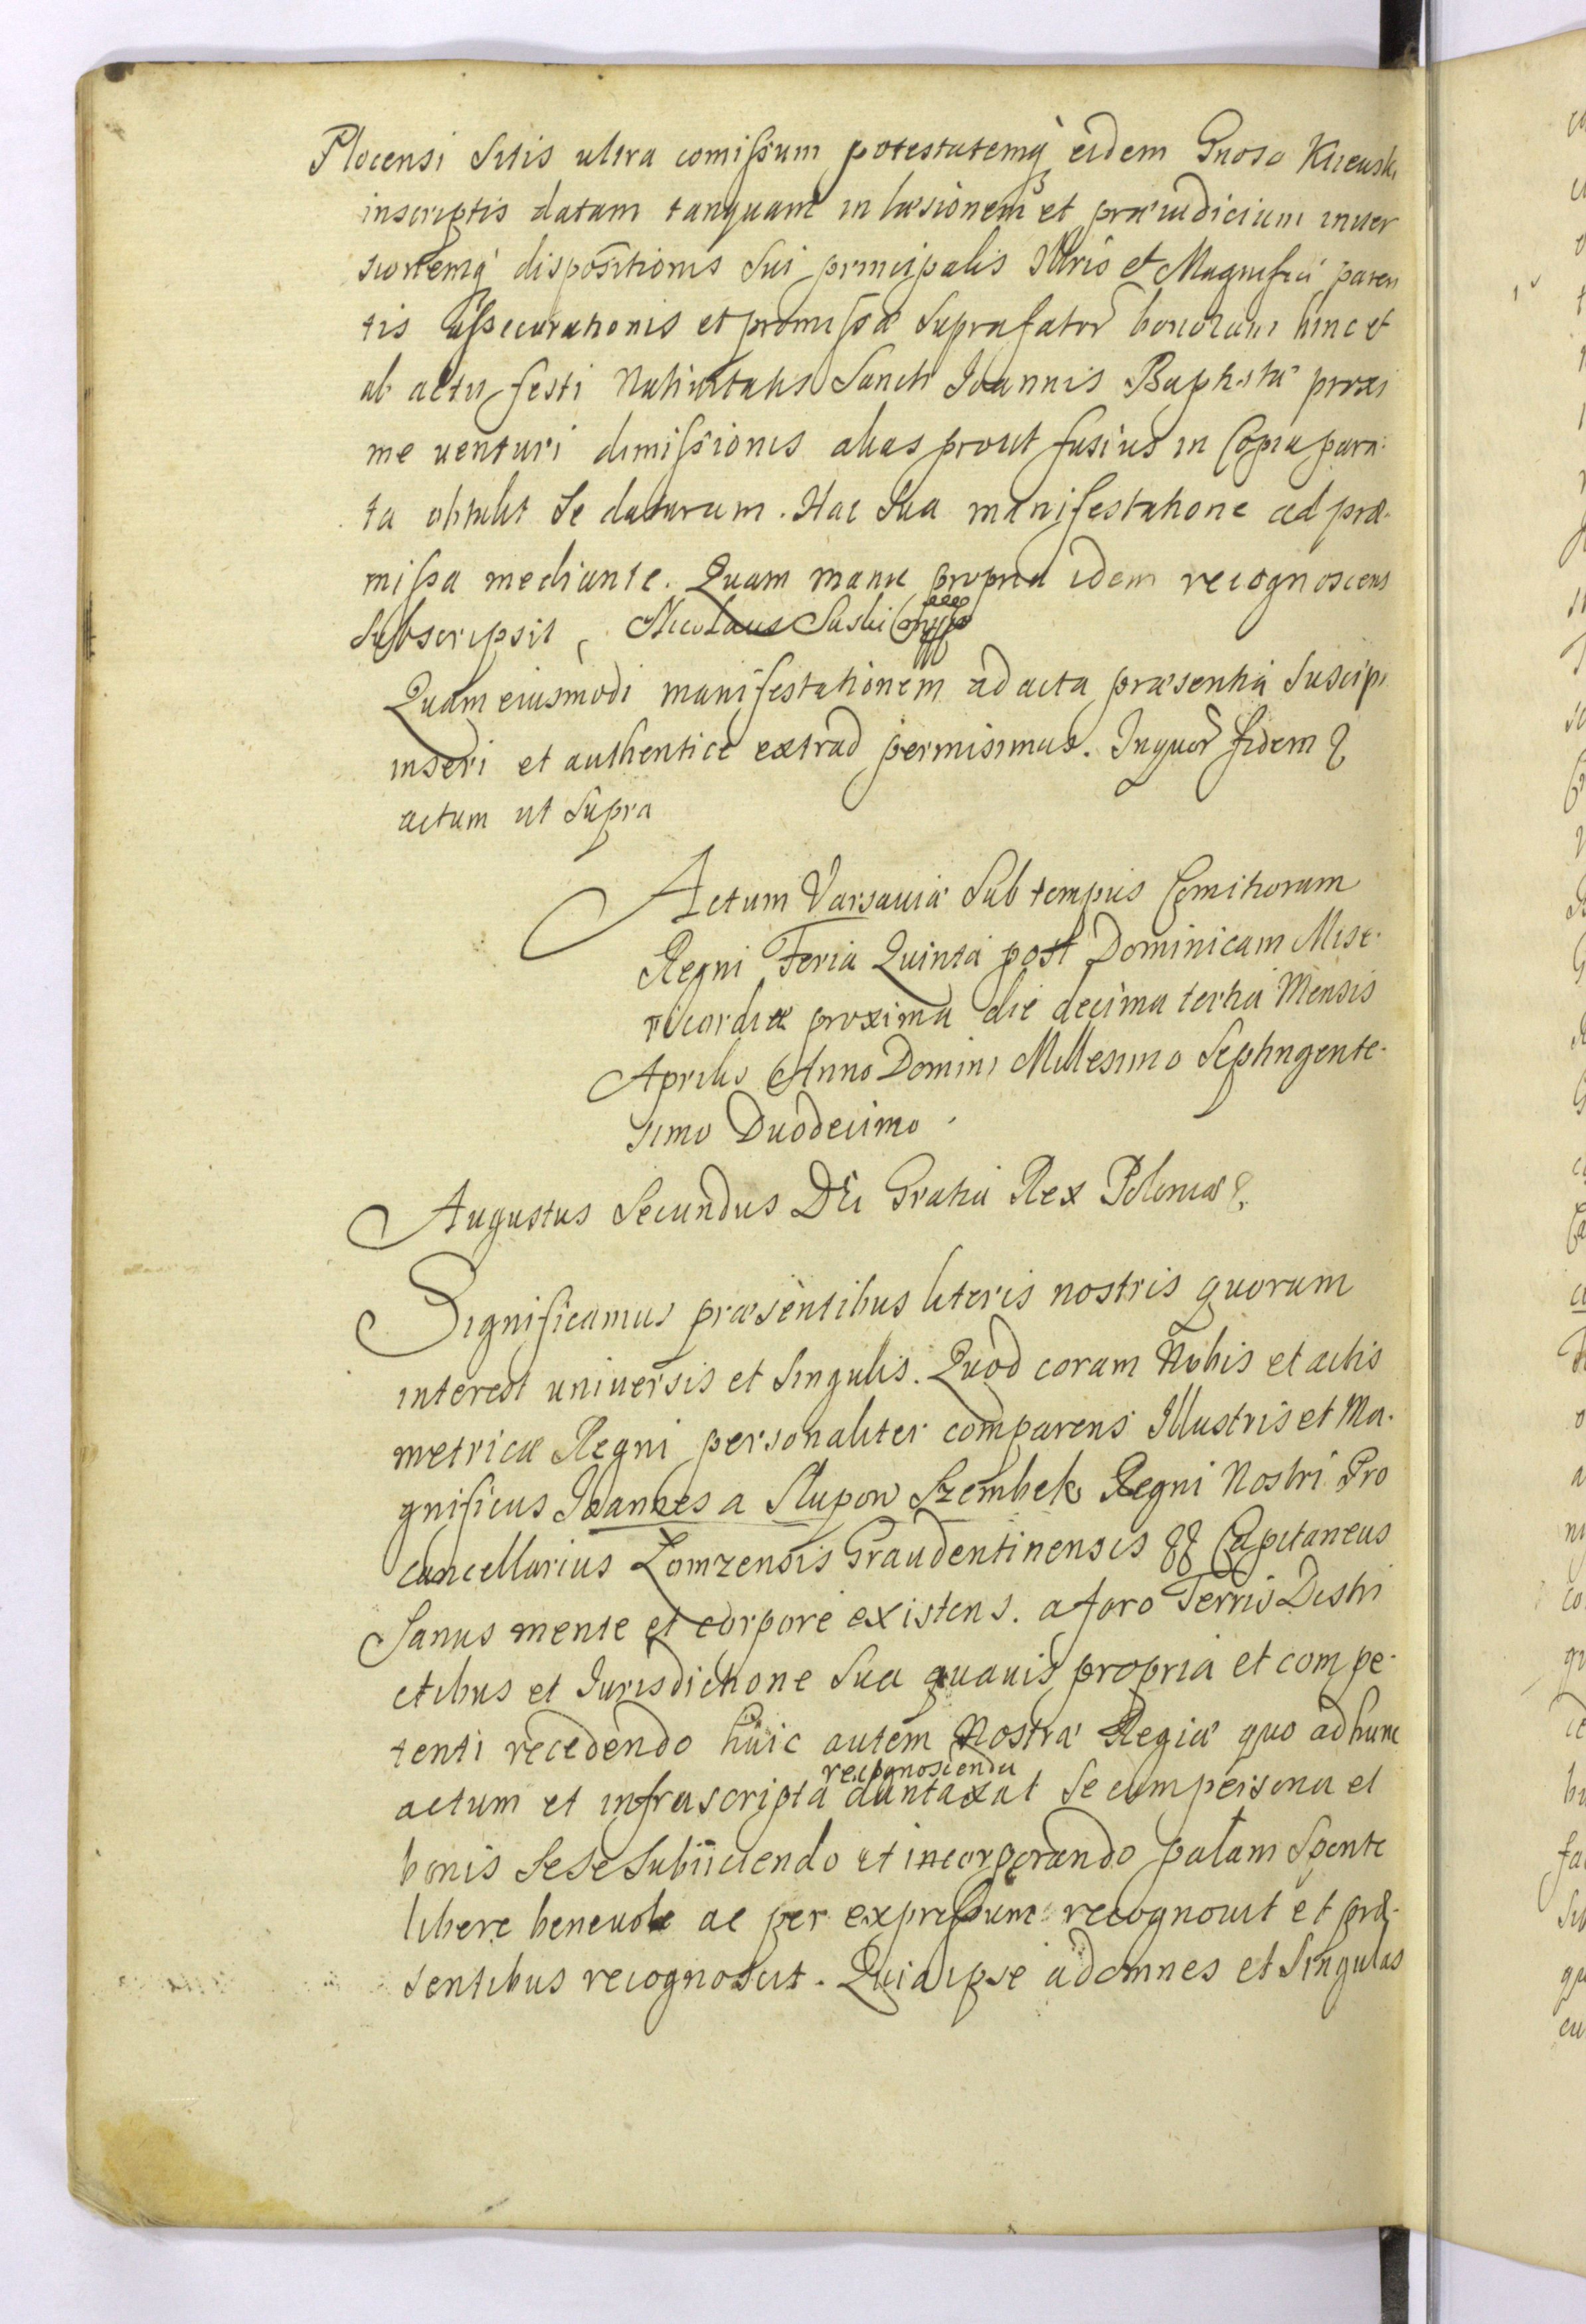 Plocensi sitis ultra comissum potestatemq eidem Gnoso Kiiewski
inscriptis datam tanquam in læsionem et præiudicium inver
sionemq dispositionis sui principalis Illris et Magnifici paren
tis assecurationis et promissæ suprafator bonorum hinc et
ab actu festi Nativitatis Sancti Ioannis Baptistæ proxi
me venturi dimissionis alias prout fusius in Copia para-
ta obtulit se daturum. Hac sua manifestatione ad præ-
missa mediante. Quam manu propria idem recognoscens
subscripsit, Nicolaus Suski mpp
Quam eiusmodi manifestationem ad acta præsentia suscipi
inseri et authentice extrad permisimus. Inquor fidem &
actum ut supra
Actum Varsaviæ sub tempus Comitiorum
Regni Feria Quinta post Dominicam Mise-
ricordiæ proxima die decima tertia Mensis
Aprilis Anno Domini Millesimo Septingente-
simo Duodecimo.
Augustus Secundus DEi Gratia Rex Poloniæ &.
Significamus præsentibus literis nostris quorum
interest universis et singulis. Quod coram Nobis et actis
metricæ Regni personaliter comparens Illustris et Ma-
gnificus Ioannes a Slupow Szembek Regni Nostri Pro
cancellarius Lomzensis Graudentinensis && Capitaneus
Sanus mente et corpore existens. a foro Terris Distri
ctibus et Iurisdictione sua quavis propria et compe-
tenti recedendo huic autem Nostræ Regiæ quo ad hunc
actum et infrascripta recognoscenda duntaxat se cum persona et
bonis sese subiiciendo et incorporando palam sponte
libere benevole ac per expressum recognovit et præ-
sentibus recognoscit. Quia ipse ad omnes et singulas